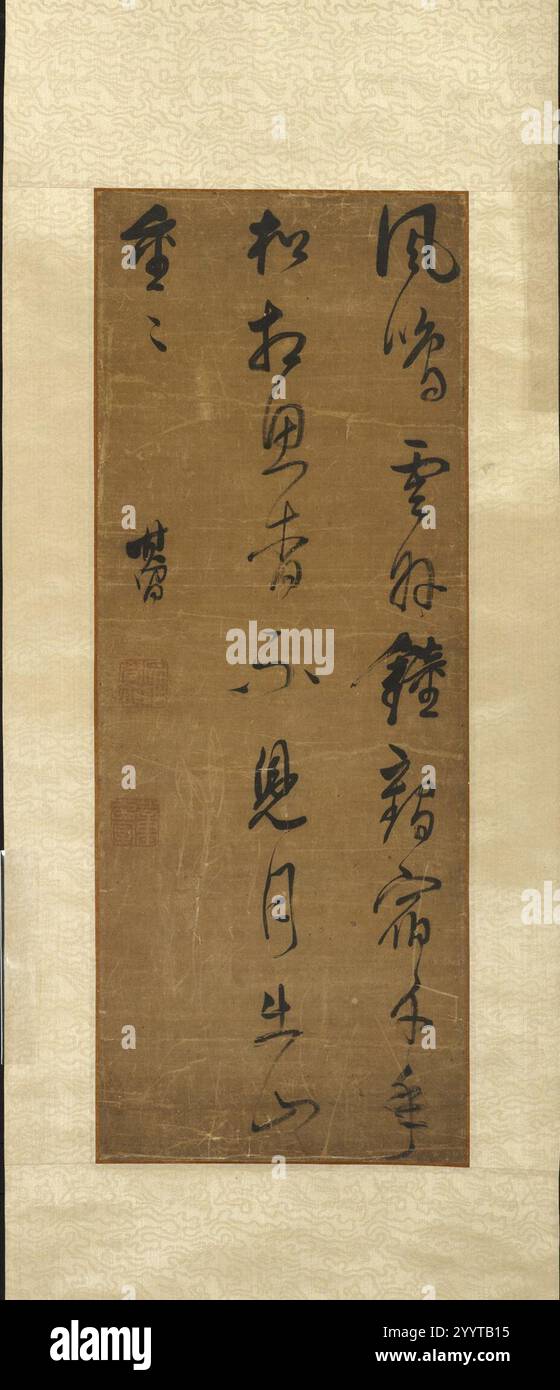 風鳴雲外鐘鶴宿千年
松相思杳不見月出山
重〻
其昌
alamy
alamy
Image ID: 2YYTB15
www.alamy.com